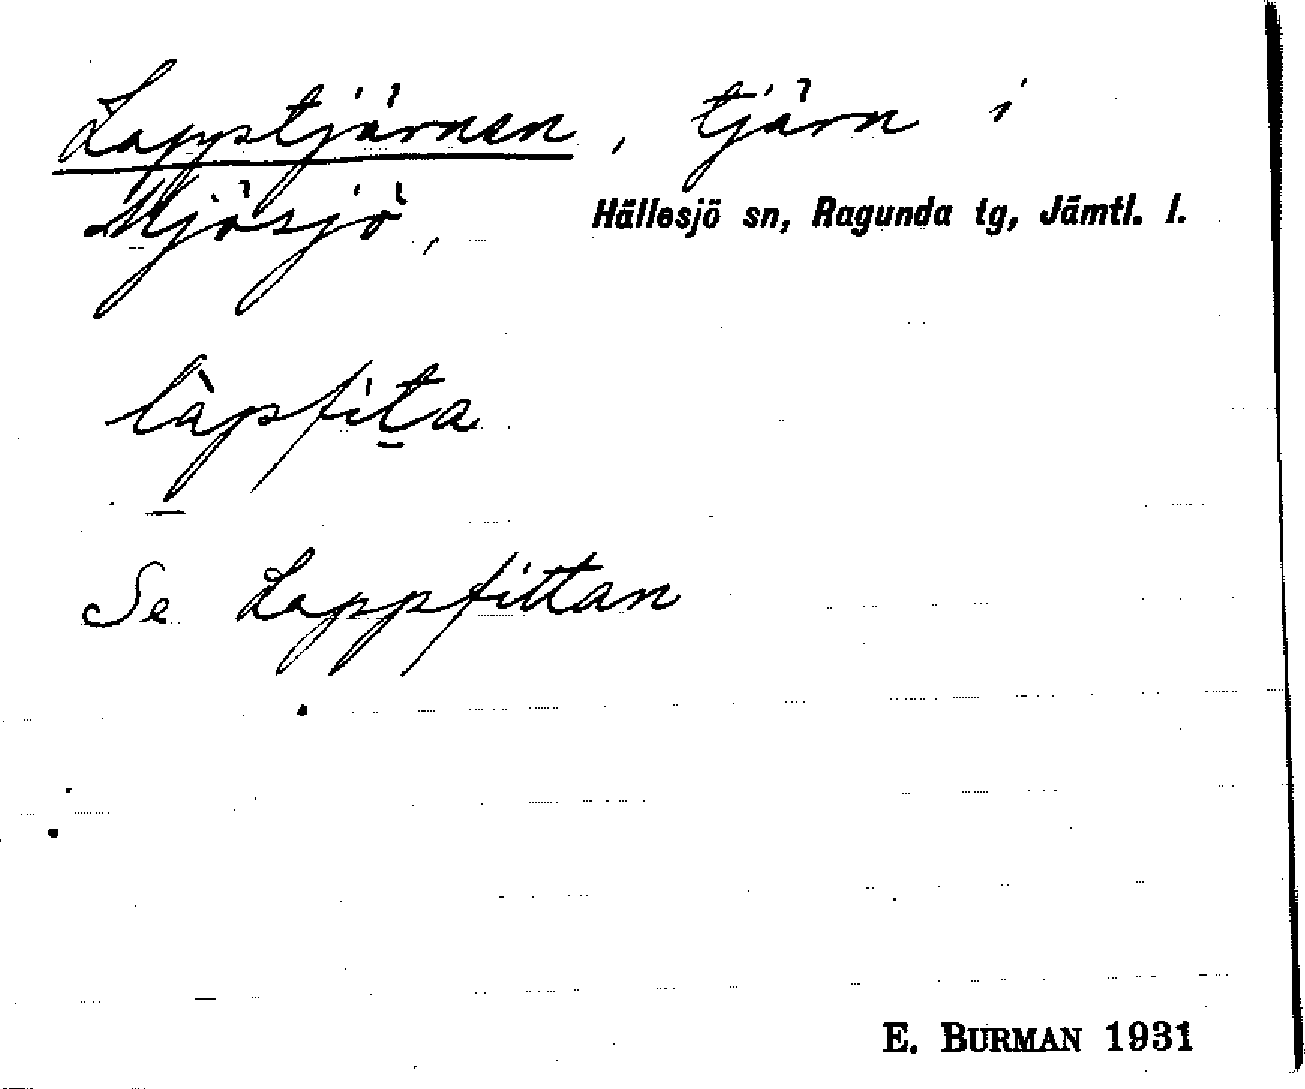 Lappstjärnen, tjärn i
Mjösjö, Hällesjö sn, Ragunda tg, Jämtl. l.
làpfita
Se Lappfittan
E. BURMAN 1931